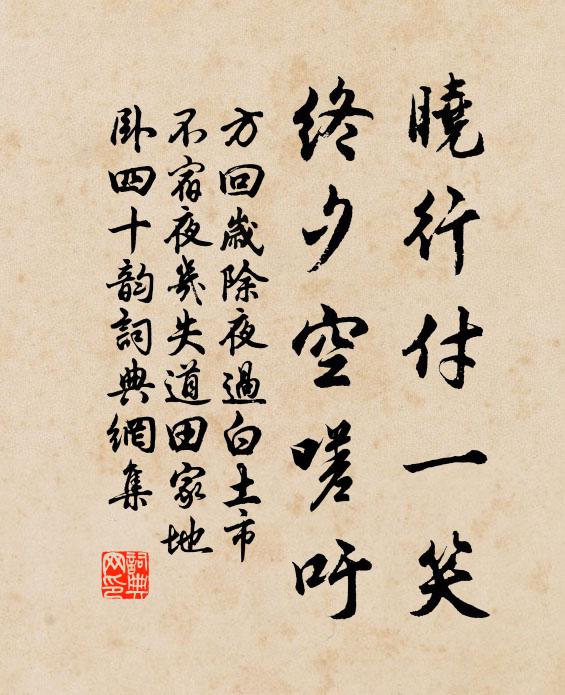 曉行付一笑
終夕空嗟吁
方回歲除夜過白土市
不宿夜幾失道田家地
臥四十韵詞典網集
詞典网印